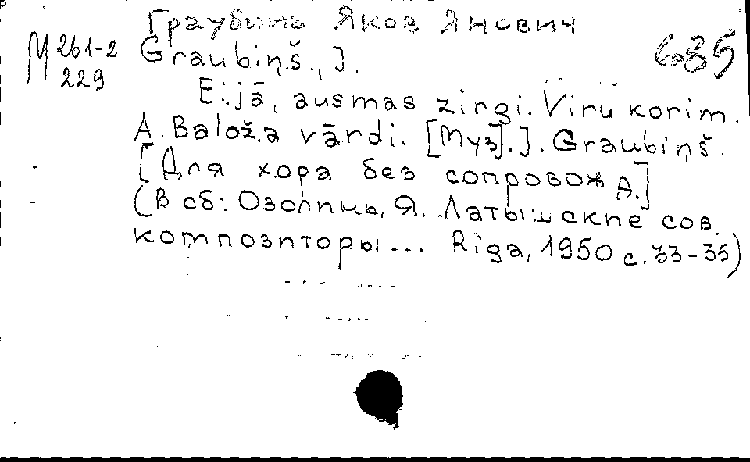 Граубинь Яков Янович
М 261-2
229
Graubiņš, J.
685
Eijā, ausmas zirgi. Vīru korim.
A. Baloža vārdi. [Муз]. J. Graubiņš.
[Для хора без сопровожд.]
(В сб: Озолинь, Я. Латышские сов.
композиторы... Rīga, 1950 с. 33-35)